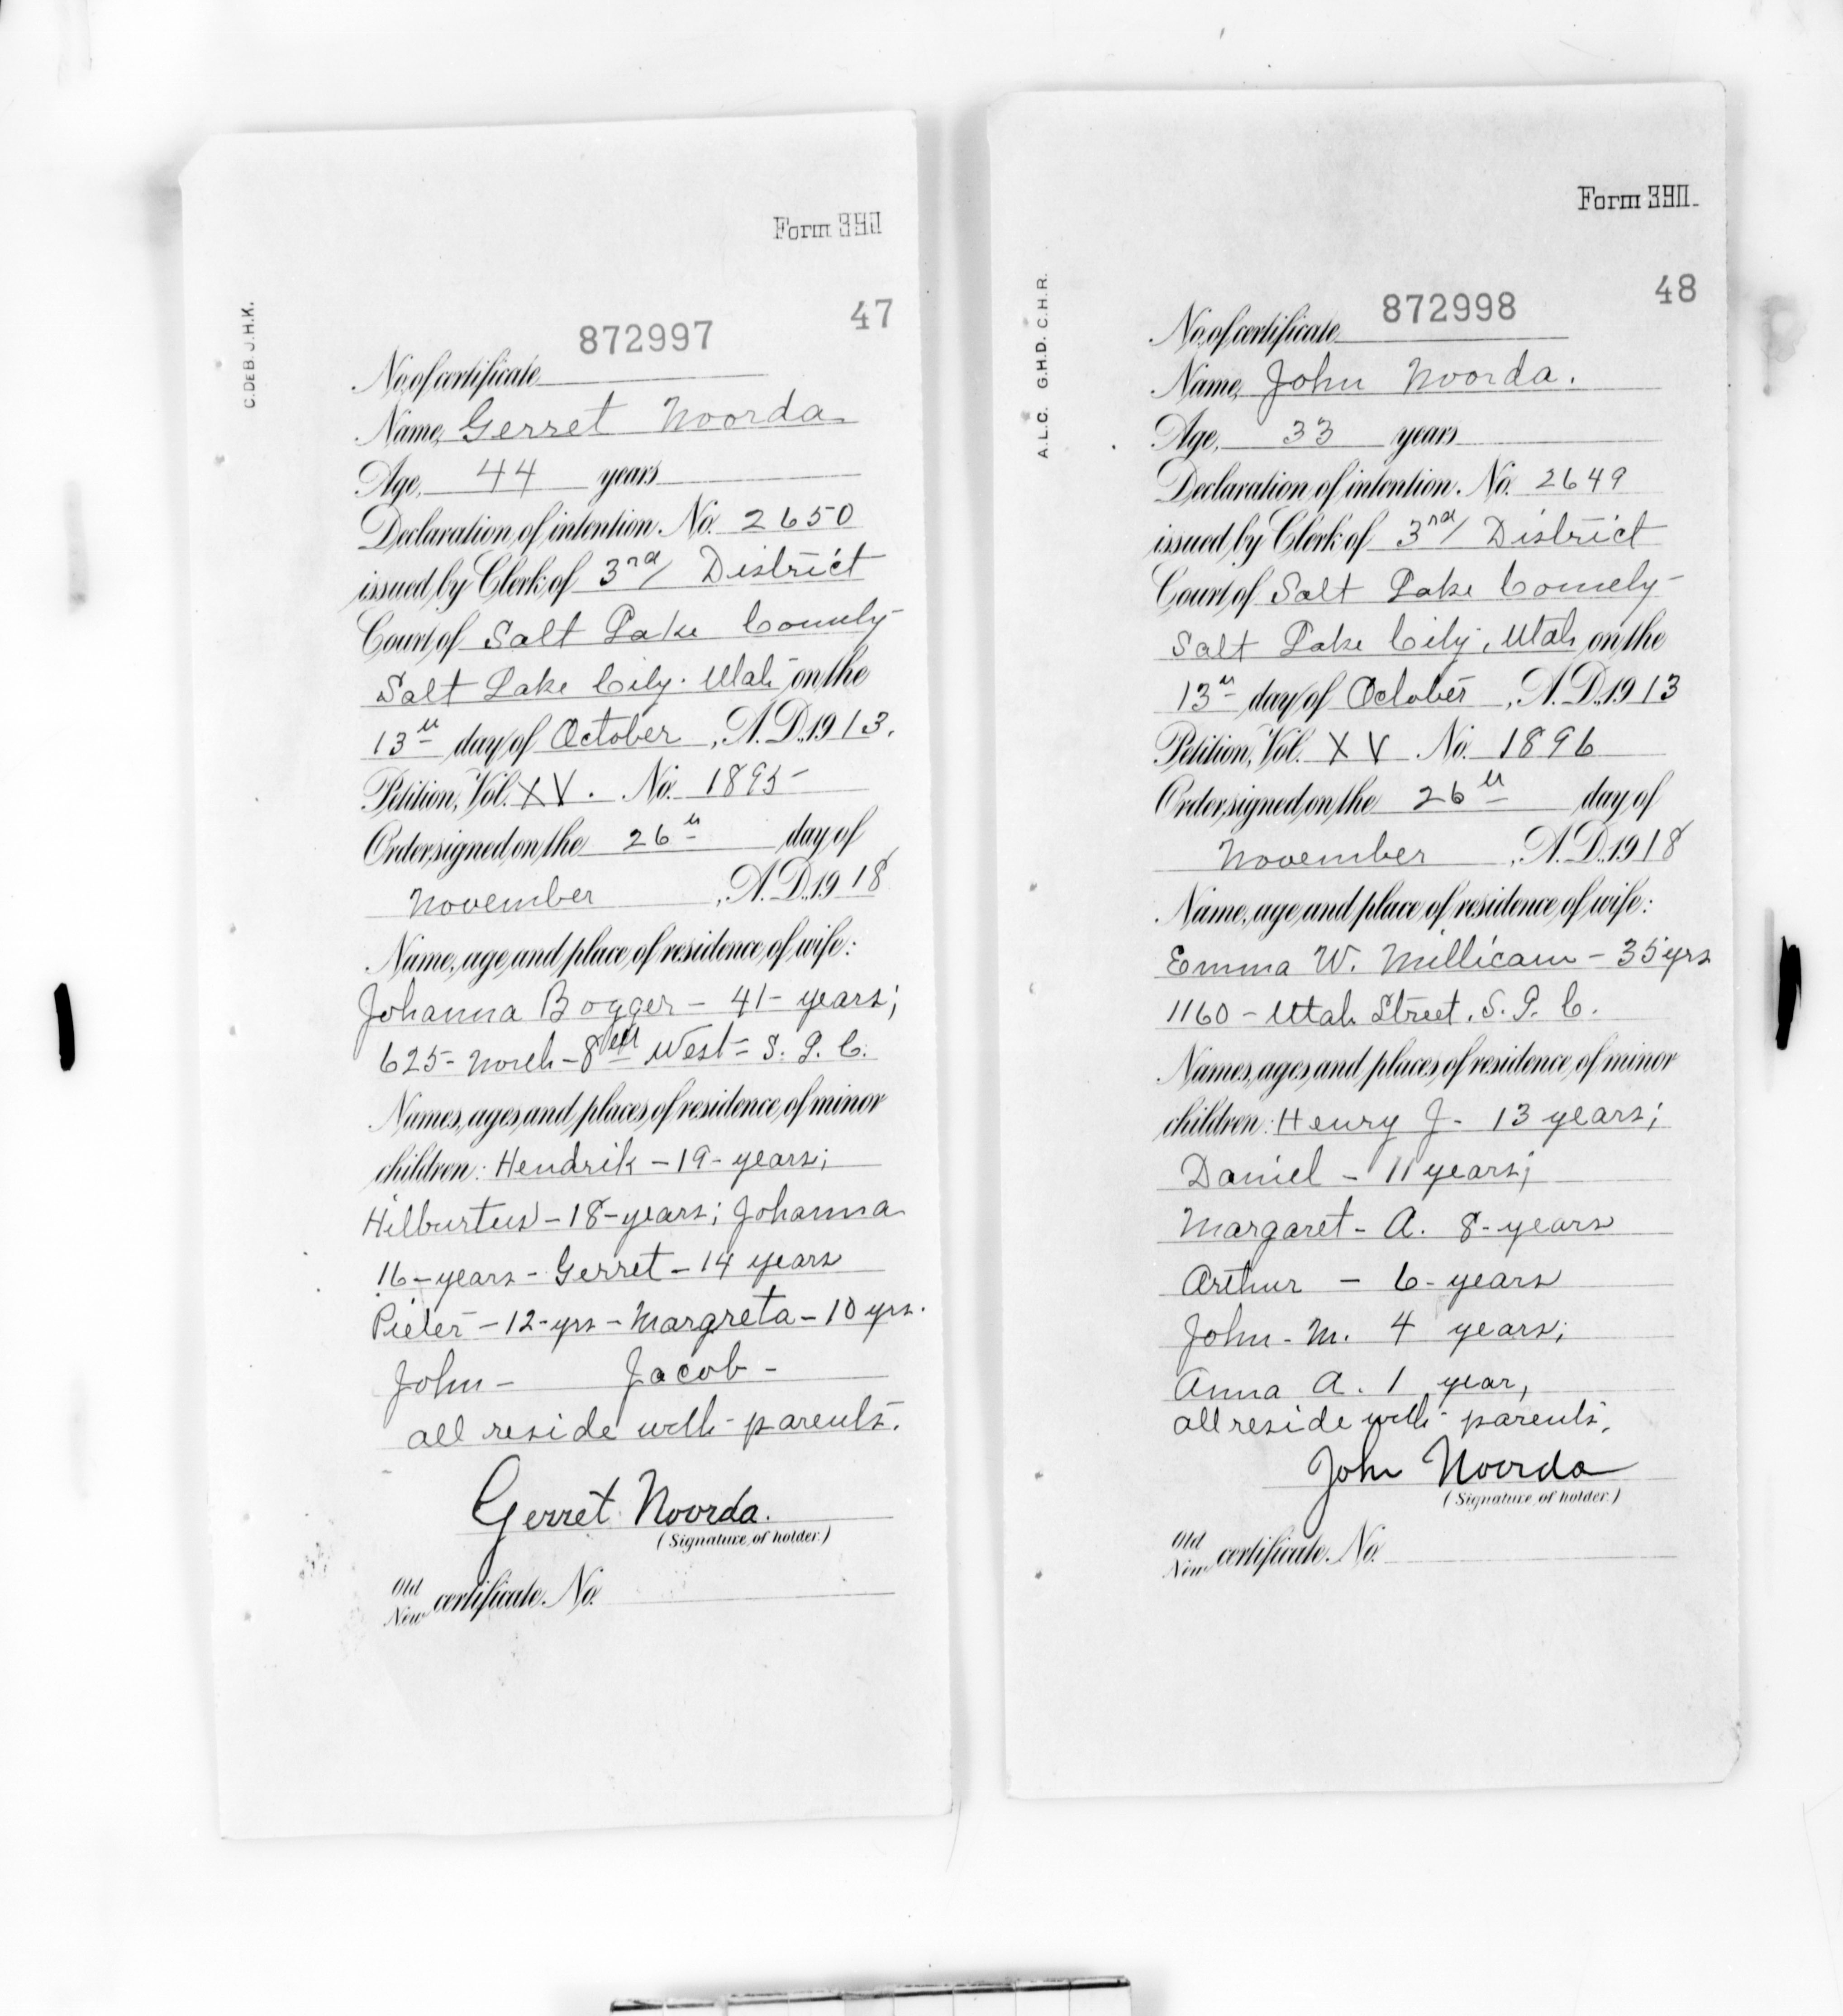 Form 390
C.DEB. J.H.K.
47
872997
No. of certificate
Name, Gerret Noorda
Age, 44 years
Declaration of intention. No. 2650
issued by Clerk of 3rd District
Court of Salt Lake County
Salt Lake City. Utah on the
13th day of October, A.D. 1913.
Petition, Vol. XV. No. 1895
Order signed on the 26th day of
November, A.D. 1918
Name, age and place of residence of wife:
Johanna Bogger - 41- years;
625- North - 8th West = S. L. C.
Names, ages and places of residence of minor
children: Hendrik - 19- years;
Hilburtus - 18 - years; Johanna
16 - years - Gerret - 14 years
Pieter - 12 - yrs - Margreta - 10 yrs.
John - Jacob -
all reside with parents.
Gerret Noorda.
(Signature of holder.)
Old
New certificate. No.
Form 390.
A.L.C. G.H.D. C.H.R.
48
872998
No. of certificate
Name, John Noorda.
Age, 33 years
Declaration of intention. No. 2649
issued by Clerk of 3rd District
Court of Salt Lake County
Salt Lake City, Utah on the
13th day of October, A.D. 1913
Petition, Vol. XV No. 1896
Order signed on the 26th day of
November, A.D. 1918
Name, age and place of residence of wife:
Emma W. Millicam - 35 yrs
1160 - Utah Street, S. L. C.
Names, ages and places of residence of minor
children: Henry J - 13 years;
Daniel - 11 years;
Margaret - A. 8 - years
Arthur - 6 - years
John - M. 4 years;
Anna A. 1 year,
all reside with parents.
John Noorda
(Signature of holder.)
Old
New certificate. No.